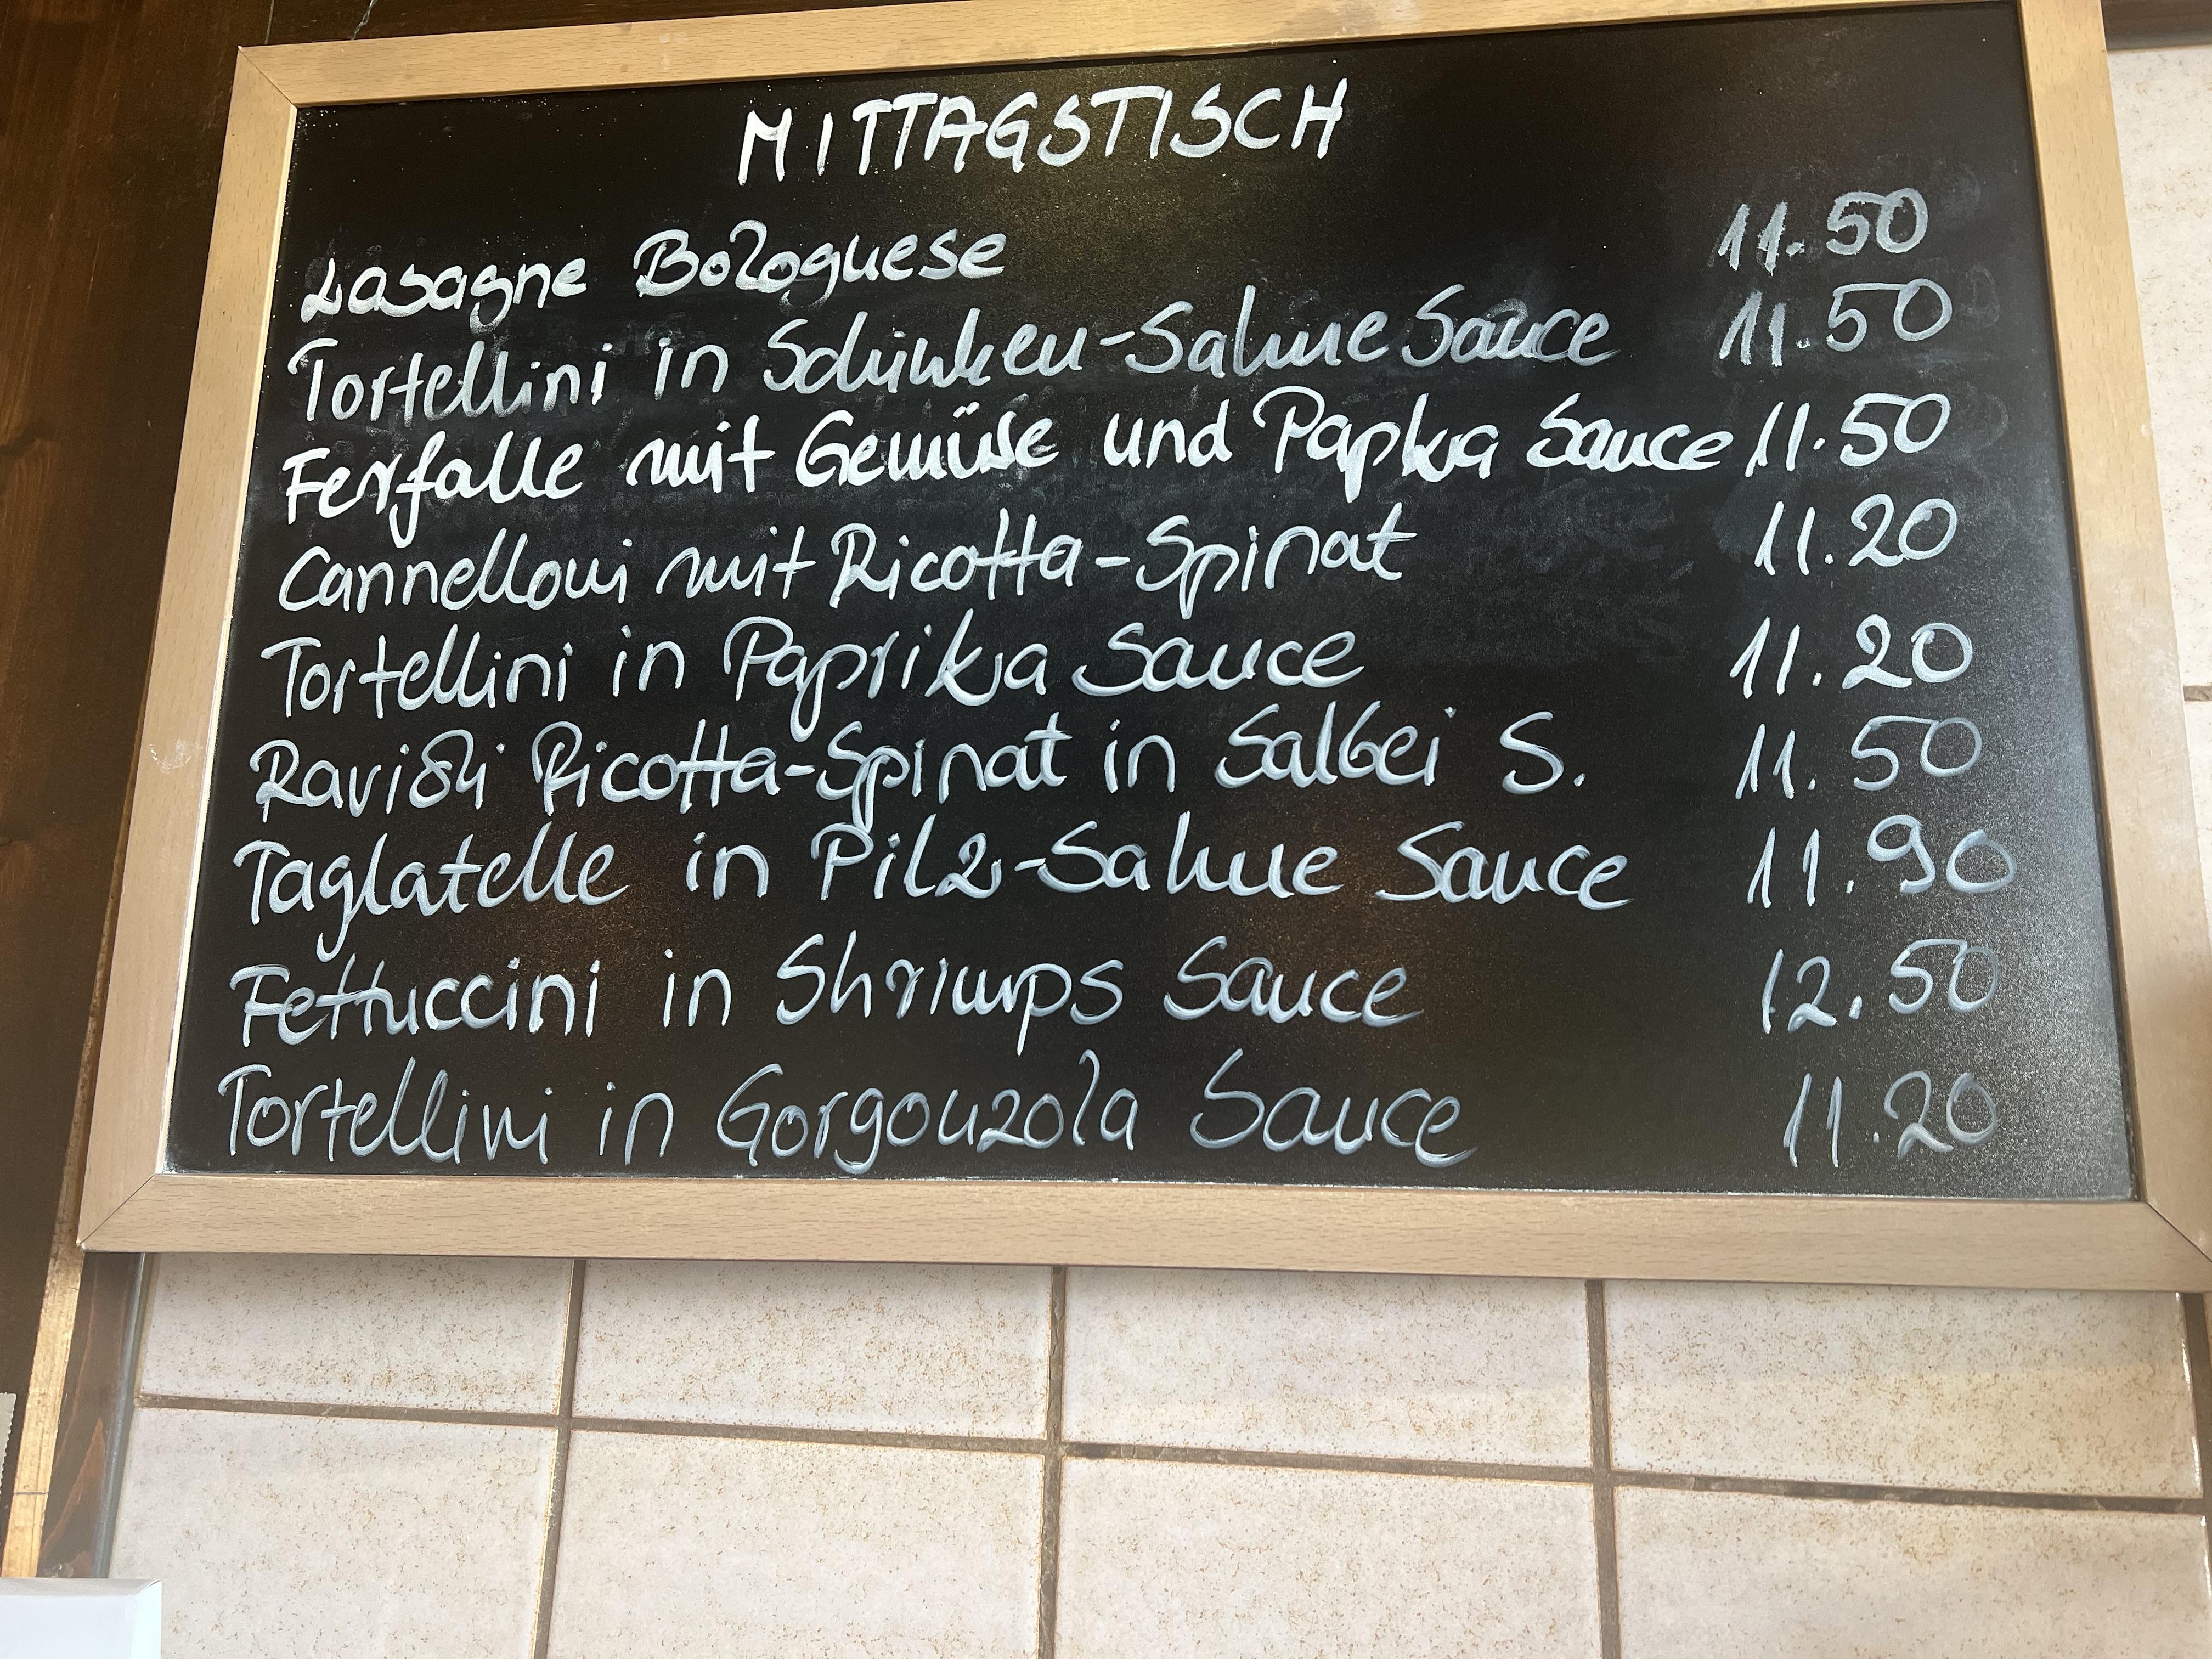 MITTAGSTISCH
Lasagne Bolognese 11.50
Tortellini in Schinken-Sahne Sauce 11.50
Ferfalle mit Gemüse und Papka Sauce 11.50
Cannelloni mit Ricotta-Spinat 11.20
Tortellini in Paprika Sauce 11.20
Ravioli Ricotta-Spinat in Salbei S. 11.50
Taglatelle in Pilz-Sahne Sauce 11.90
Fettuccini in Shrimps Sauce 12.50
Tortellini in Gorgonzola Sauce 11.20